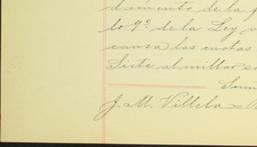 damento de la
lo 9º de la Ley
causa las cuotas
Siete al millar
J. M. Villela